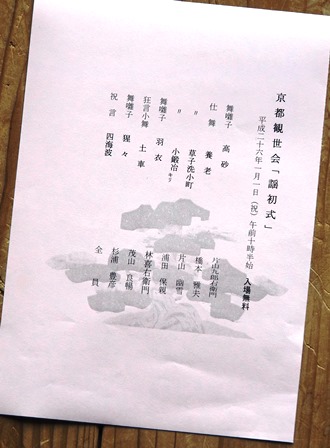 京都観世会「謡初式」
平成二十六年一月一日（祝）午前十時半始　入場無料
舞囃子　高砂　片山九郎右衛門
仕舞　養老　橋本　雅夫
〃　草子洗小町　片山　幽雪
〃　小鍛冶キリ　浦田　保親
舞囃子　羽衣　林喜右衛門
狂言小舞　土車　茂山　良暢
舞囃子　猩々　杉浦　豊彦
祝言　四海波　全員